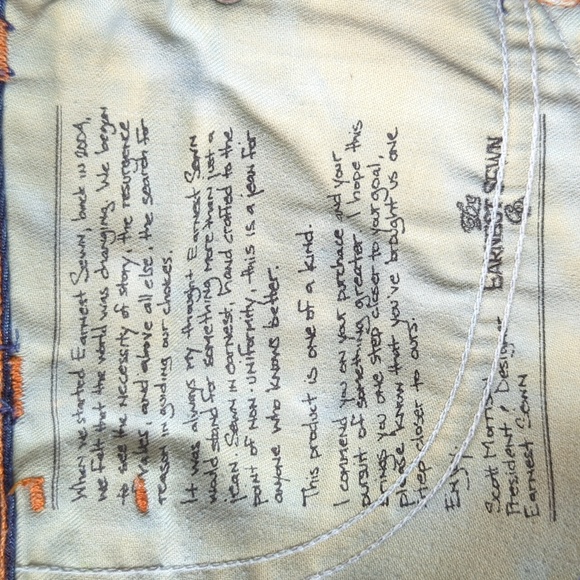 When we started Earnest Sewn, back in 2004,
we felt that the world was changing. We began
to see the necessity of story, the resurgence
values, and above all else, the search for
reason in guiding our choices.
It was always my thought Earnest Sewn
would stand for something more than just a
jean. Sewn in earnest, hand crafted to the
point of non-uniformity, this is a jean for
anyone who knows better.
This product is one of a kind.
I commend you on your purchase and your
pursuit of something greater. I hope this
brings you one step closer to your goal,
please know that you've brought us one
step closer to ours.
Enjoy
Scott Morris
President / Designer
Earnest Sewn
The
EARNEST SEWN
Co.